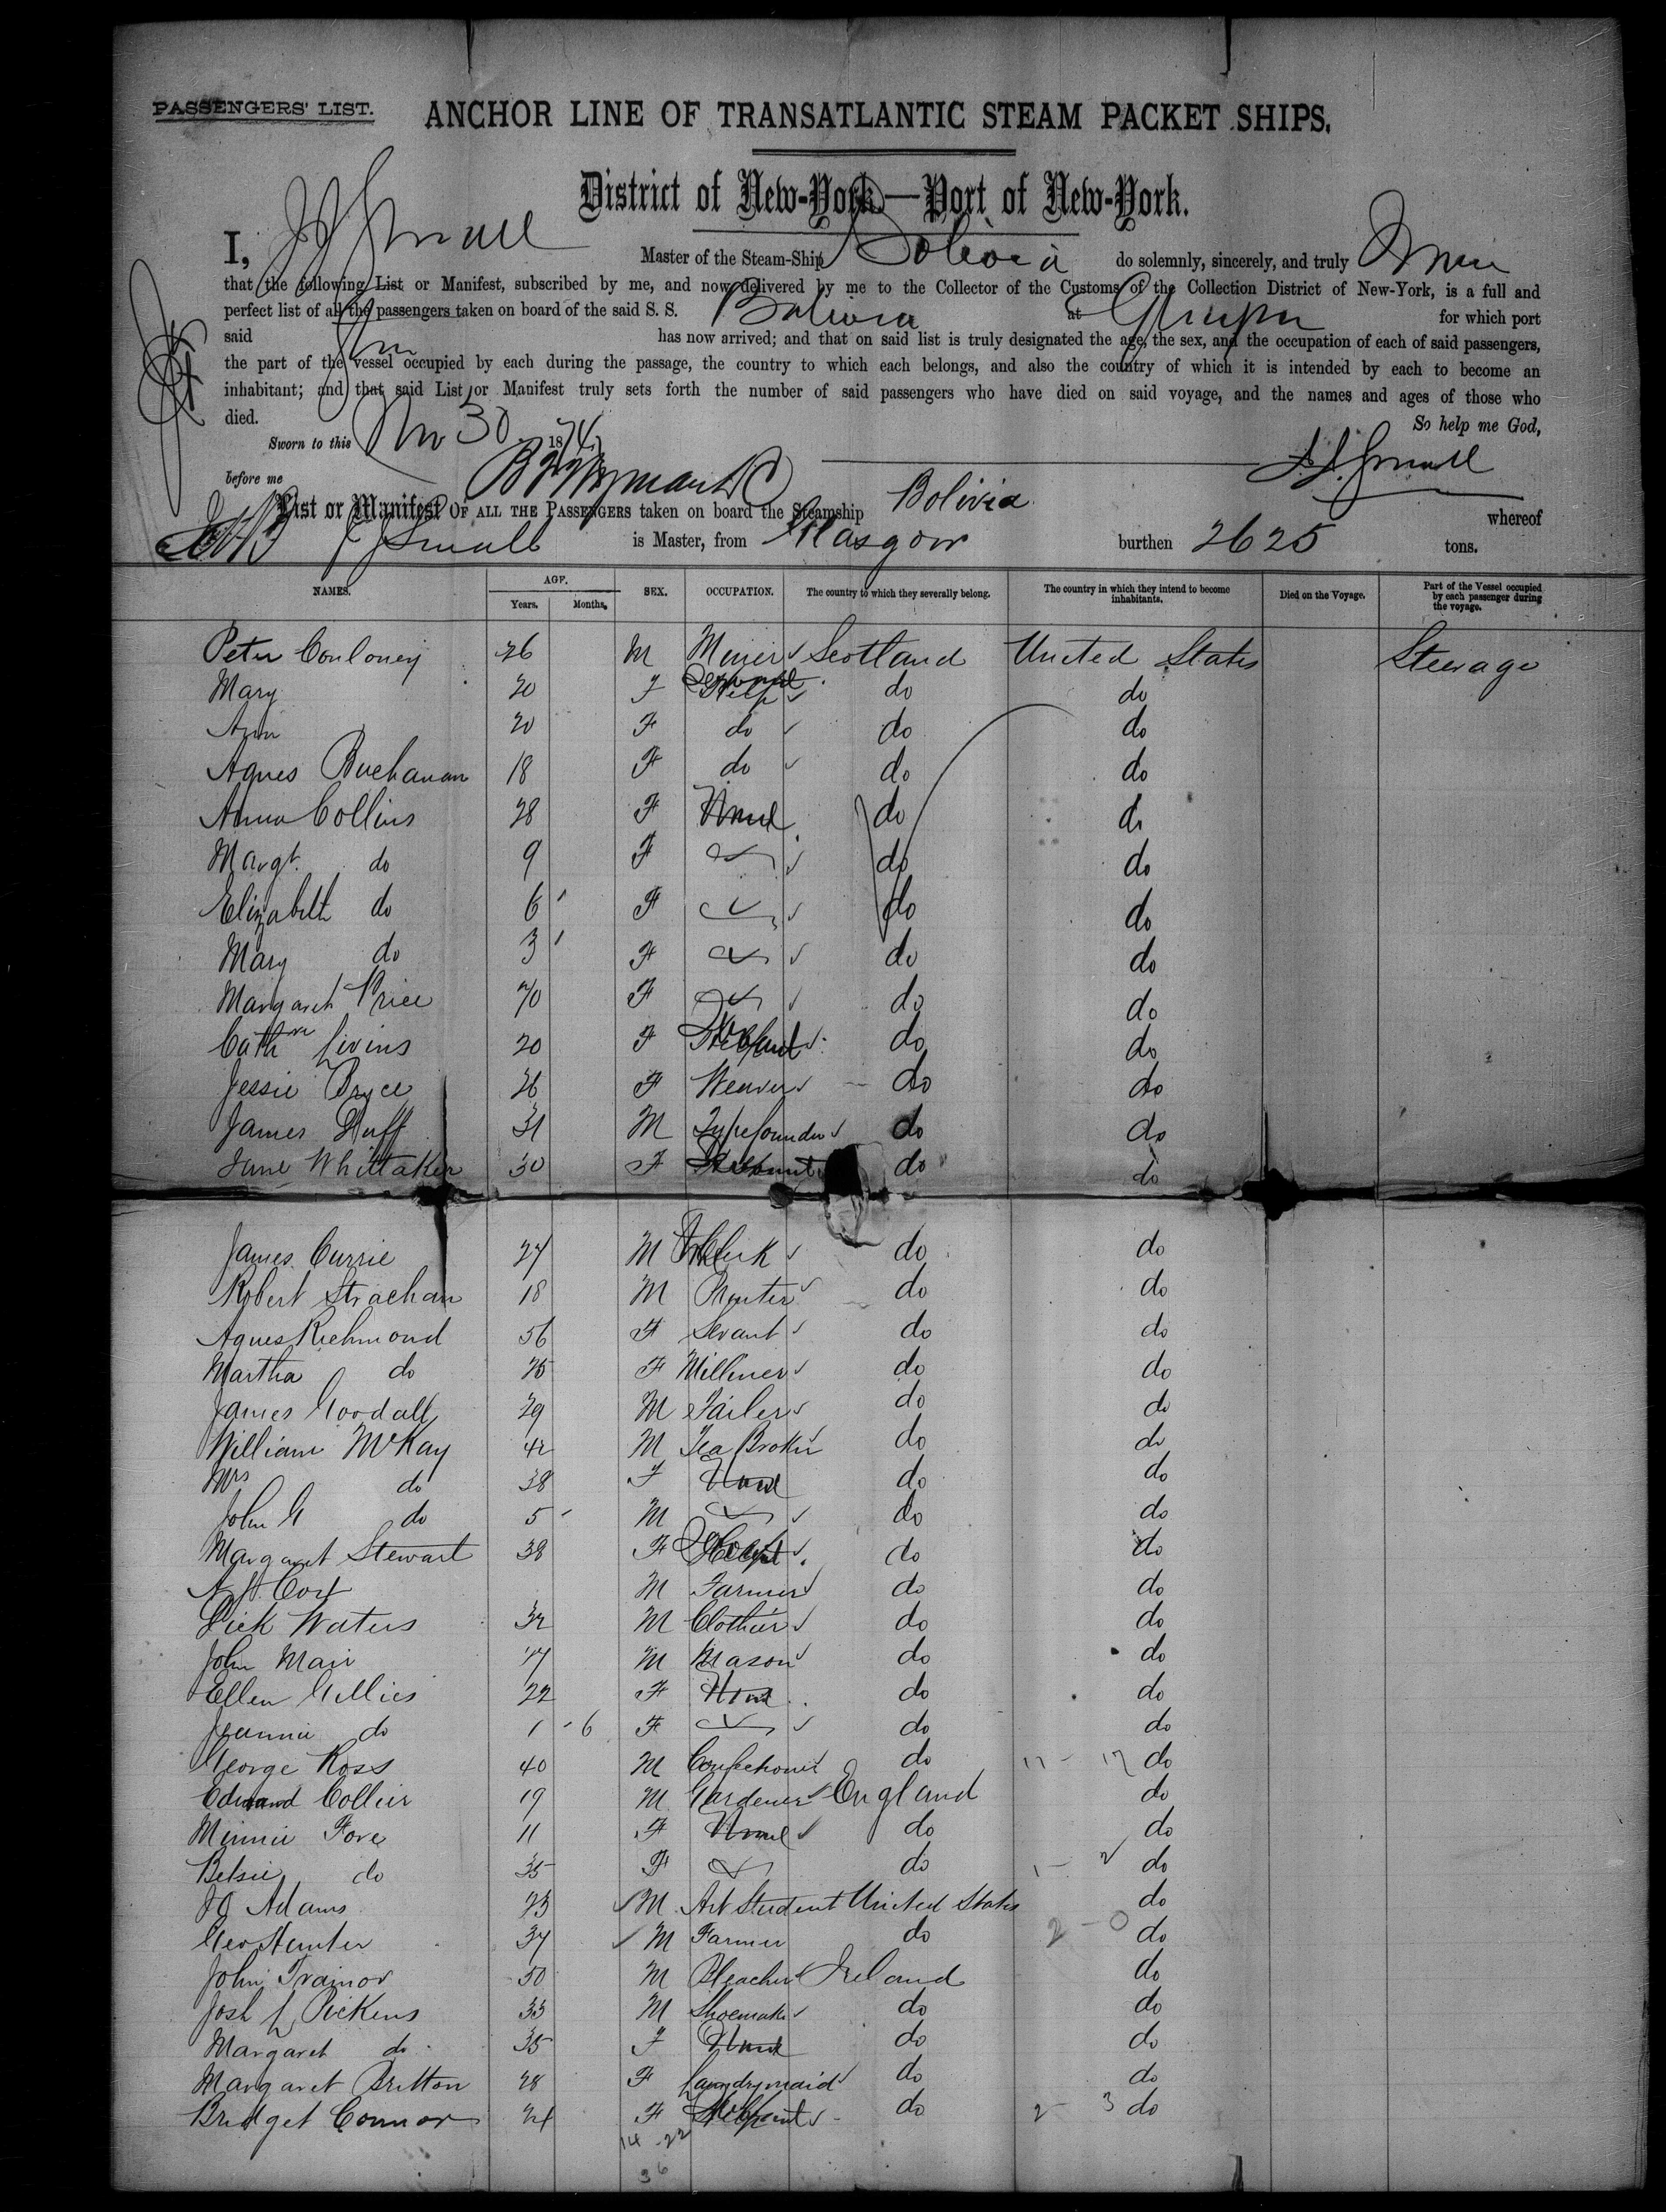 PASSENGERS' LIST. ANCHOR LINE OF TRANSATLANTIC STEAM PACKET SHIPS.
District of New-York—Port of New-York.
I, J J Small Master of the Steam-Ship Bolivia do solemnly, sincerely, and truly
that the following List or Manifest, subscribed by me, and now delivered by me to the Collector of the Customs of the Collection District of New-York, is a full and
perfect list of all the passengers taken on board of the said S. S. Bolivia at Glasgow for which port
said has now arrived; and that on said list is truly designated the age, the sex, and the occupation of each of said passengers,
the part of the vessel occupied by each during the passage, the country to which each belongs, and also the country of which it is intended by each to become an
inhabitant; and that said List or Manifest truly sets forth the number of said passengers who have died on said voyage, and the names and ages of those who
died. So help me God,
Sworn to this Nov 30 1874
before me J J Small
List or Manifest OF ALL THE PASSENGERS taken on board the Steamship Bolivia whereof
J J Small is Master, from Glasgow burthen 2625 tons.
NAMES. AGE. Years. Months. SEX. OCCUPATION. The country to which they severally belong. The country in which they intend to become inhabitants. Died on the Voyage. Part of the Vessel occupied by each passenger during the voyage.
Peter Conloney 26 M Miner Scotland United States Steerage
Mary 20 F do do
Ann 20 F do do do
Agnes Buchanan 18 F do do do
Anna Collins 28 F do do
Margt. do 9 F do do
Elizabeth do 6 F do do
Mary do 3 F do do
Margaret Price 70 F do do
Cathne Livins 20 F do do
Jessie Bryce 26 F Weaver do do
James Duff 31 M Typefounder do do
Jane Whittaker 30 F do do
James Currie 27 M Clerk do do
Robert Strachan 18 M Printer do do
Agnes Richmond 56 F Sevant do do
Martha do 25 F Milliner do do
James Goodall 29 M Tailer do do
William McKay 42 M Tea Broker do do
Mrs do 38 F do do
John G do 5 M do do
Margaret Stewart 38 F do do
M Farmer do do
Dick Waters 32 M Clothier do do
John Mair M Mason do do
Ellen Gillies 22 F do do
Jeannie do 1 6 F do do
George Ross 40 M Confectioner do 17 do
Collier 19 M Gardener England do
Minnie Fore 11 F do do
Betsie do 35 F do do
Adams 23 M Art Student United States do
Geo Hunter 37 M Farmer do 2 - 0 do
John Trainor 50 M Bleacher Ireland do
Josh L Pickens 33 M Shoemaker do do
Margaret do 35 F do do
Margaret Britton 28 F Laundrymaid do do
Bridget Connor 24 F do 2 - 3 do
14 - 22
36